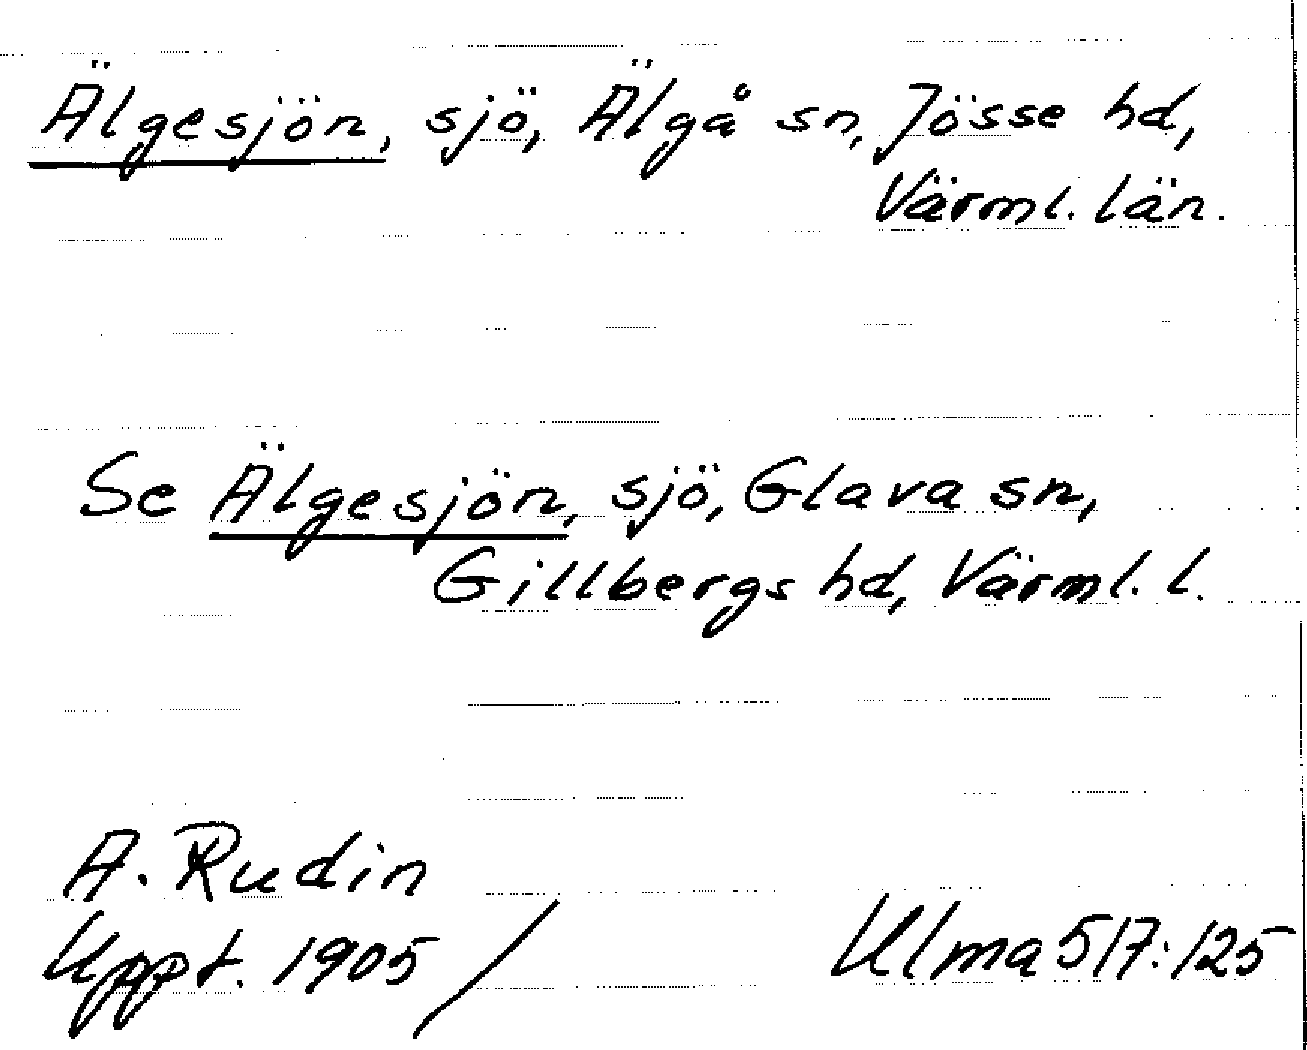 Älgesjön, sjö, Älgå sn, Jösse hd,
Värml. län.
Se Älgesjön, sjö, Glava sn,
Gillbergs hd, Värml. l.
A. Rudin
Uppt. 1905 / Ulma 517:125